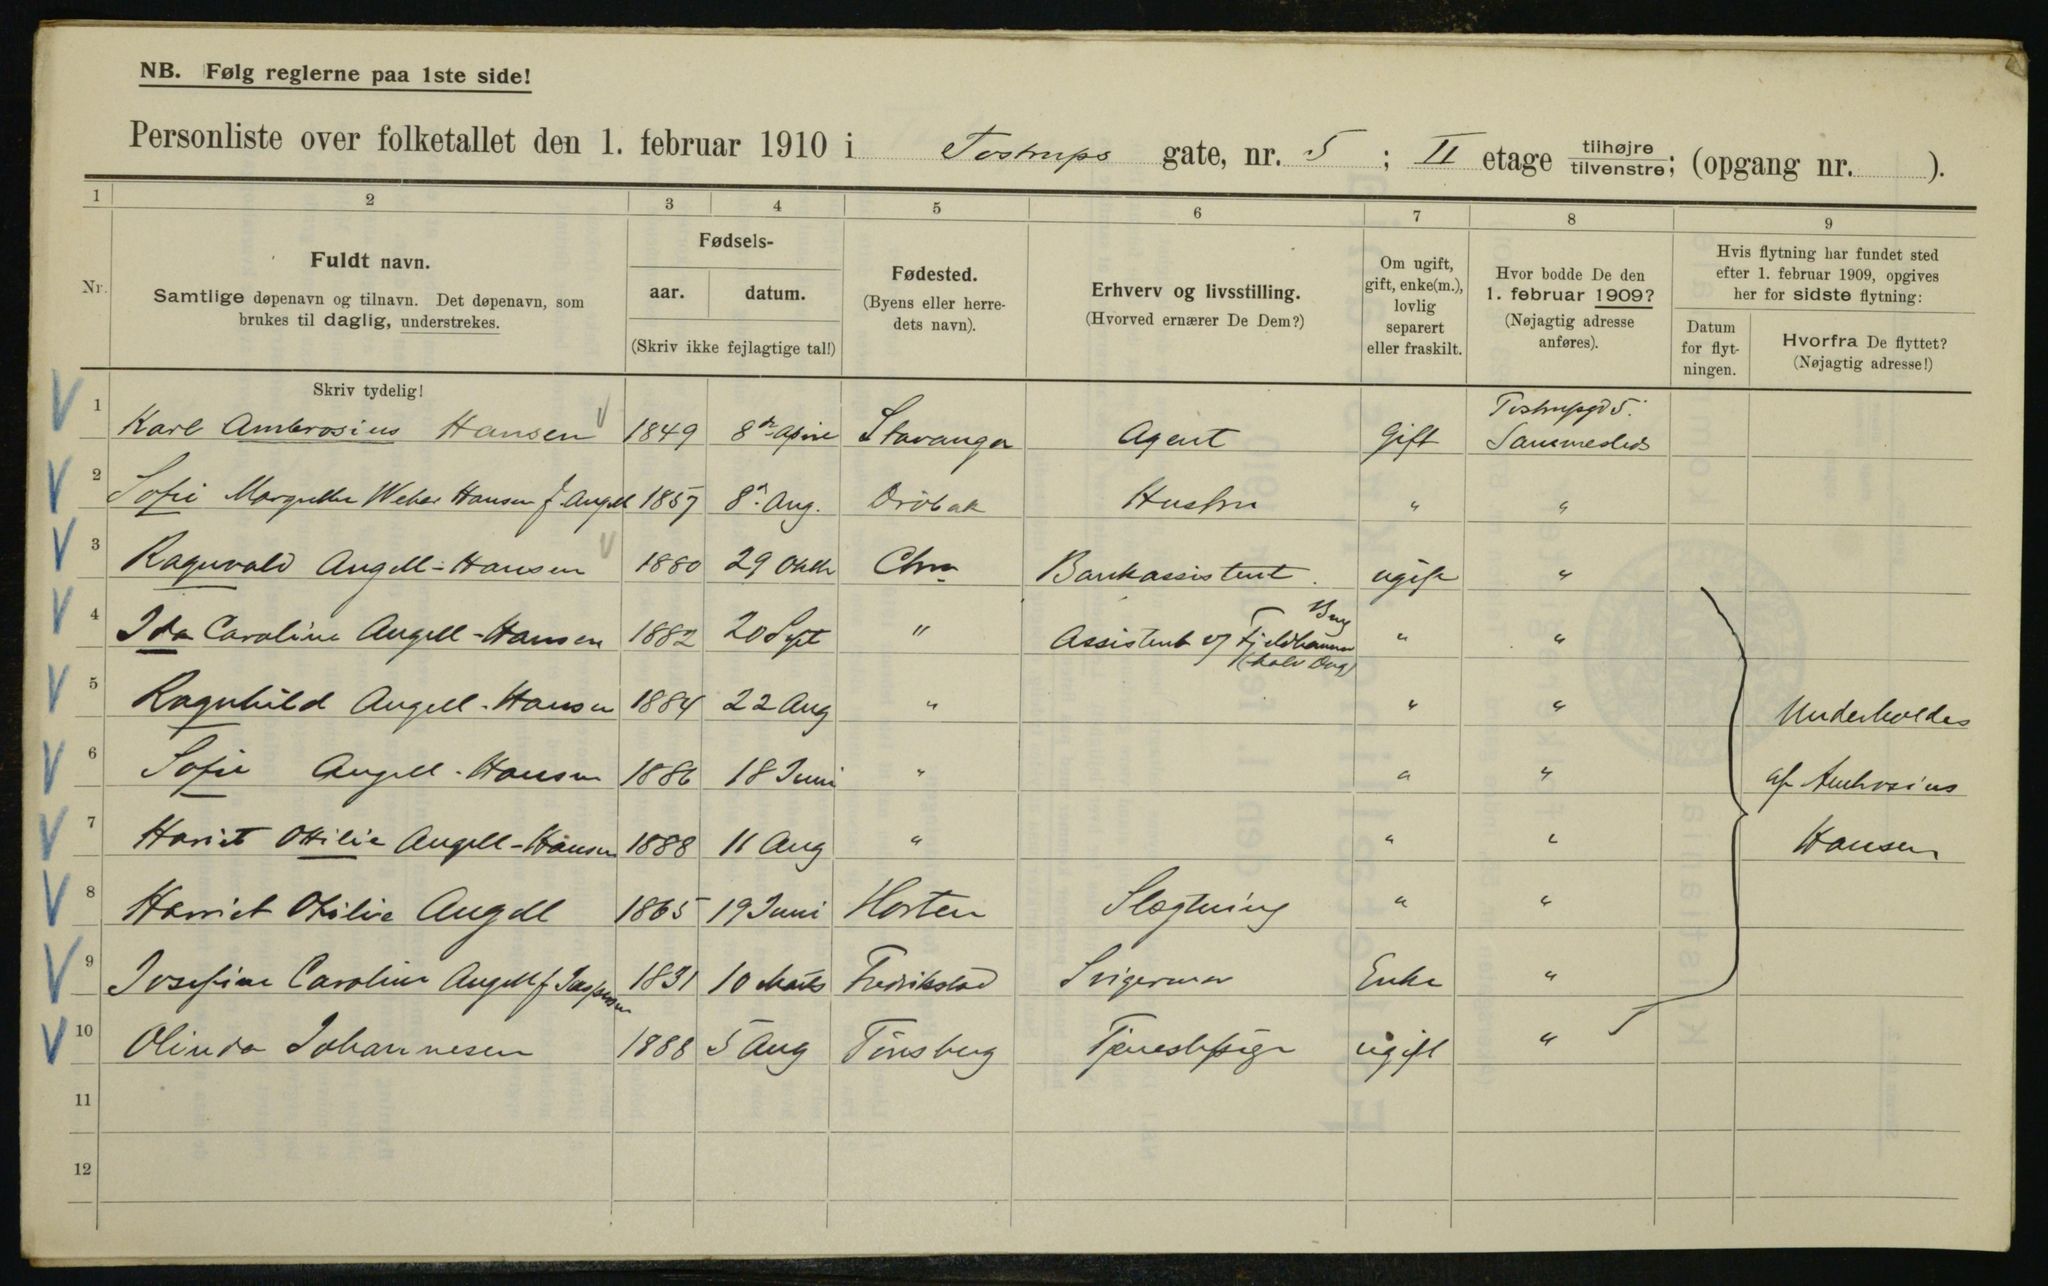 NB. Følg reglerne paa 1ste side!
Personliste over folketallet den 1. februar 1910 i Tostrups gate, nr. 5 ; II etage tilhøjre tilvenstre; (opgang nr. ).
1 2 3 4 5 6 7 8 9
Nr.
Fuldt navn.
Samtlige døpenavn og tilnavn. Det døpenavn, som
brukes til daglig, understrekes.
Skriv tydelig!
Fødsels-
aar. datum.
(Skriv ikke fejlagtige tal!)
Fødested.
(Byens eller herre-
dets navn).
Erhverv og livsstilling.
(Hvorved ernærer De Dem?)
Om ugift,
gift, enke(m.),
lovlig
separert
eller fraskilt.
Hvor bodde De den
1. februar 1909?
(Nøjagtig adresse
anføres).
Hvis flytning har fundet sted
efter 1. februar 1909, opgives
her for sidste flytning:
Datum
for flyt-
ningen.
Hvorfra De flyttet?
(Nøjagtig adresse!)
Tostrupgd 5.
1 Karl Ambrosius Hansen 1849 8de April Stavanger Agent Gift Sammesteds
2 Sofie Margrethe Weber Hansen f. Angell 1857 8de Aug. Dröbak Hustru " "
3 Ragnvald Angell-Hansen 1880 29 Oktb Chra Bankassistent. ugift "
4 Ida Caroline Angell-Hansen 1882 20 Sept " Assistent " "
(halv Dag)
5 Ragnhild Angell-Hansen 1884 22 Aug " " " Underholdes
6 Sofie Angell-Hansen 1886 18 Juni " " " af Ambrosius
7 Harriet Ottilie Angell-Hansen 1888 11 Aug " " " Hansen
8 Harriet Otilie Angell 1865 19 Juni Horten Slægtning " "
9 Josefine Caroline Angell f Jaspersen 1831 10 Marts Fredrikstad Svigermor Enke "
10 Olinda Johannesen 1888 5 Aug Tönsberg Tjenestepige ugift "
11
12